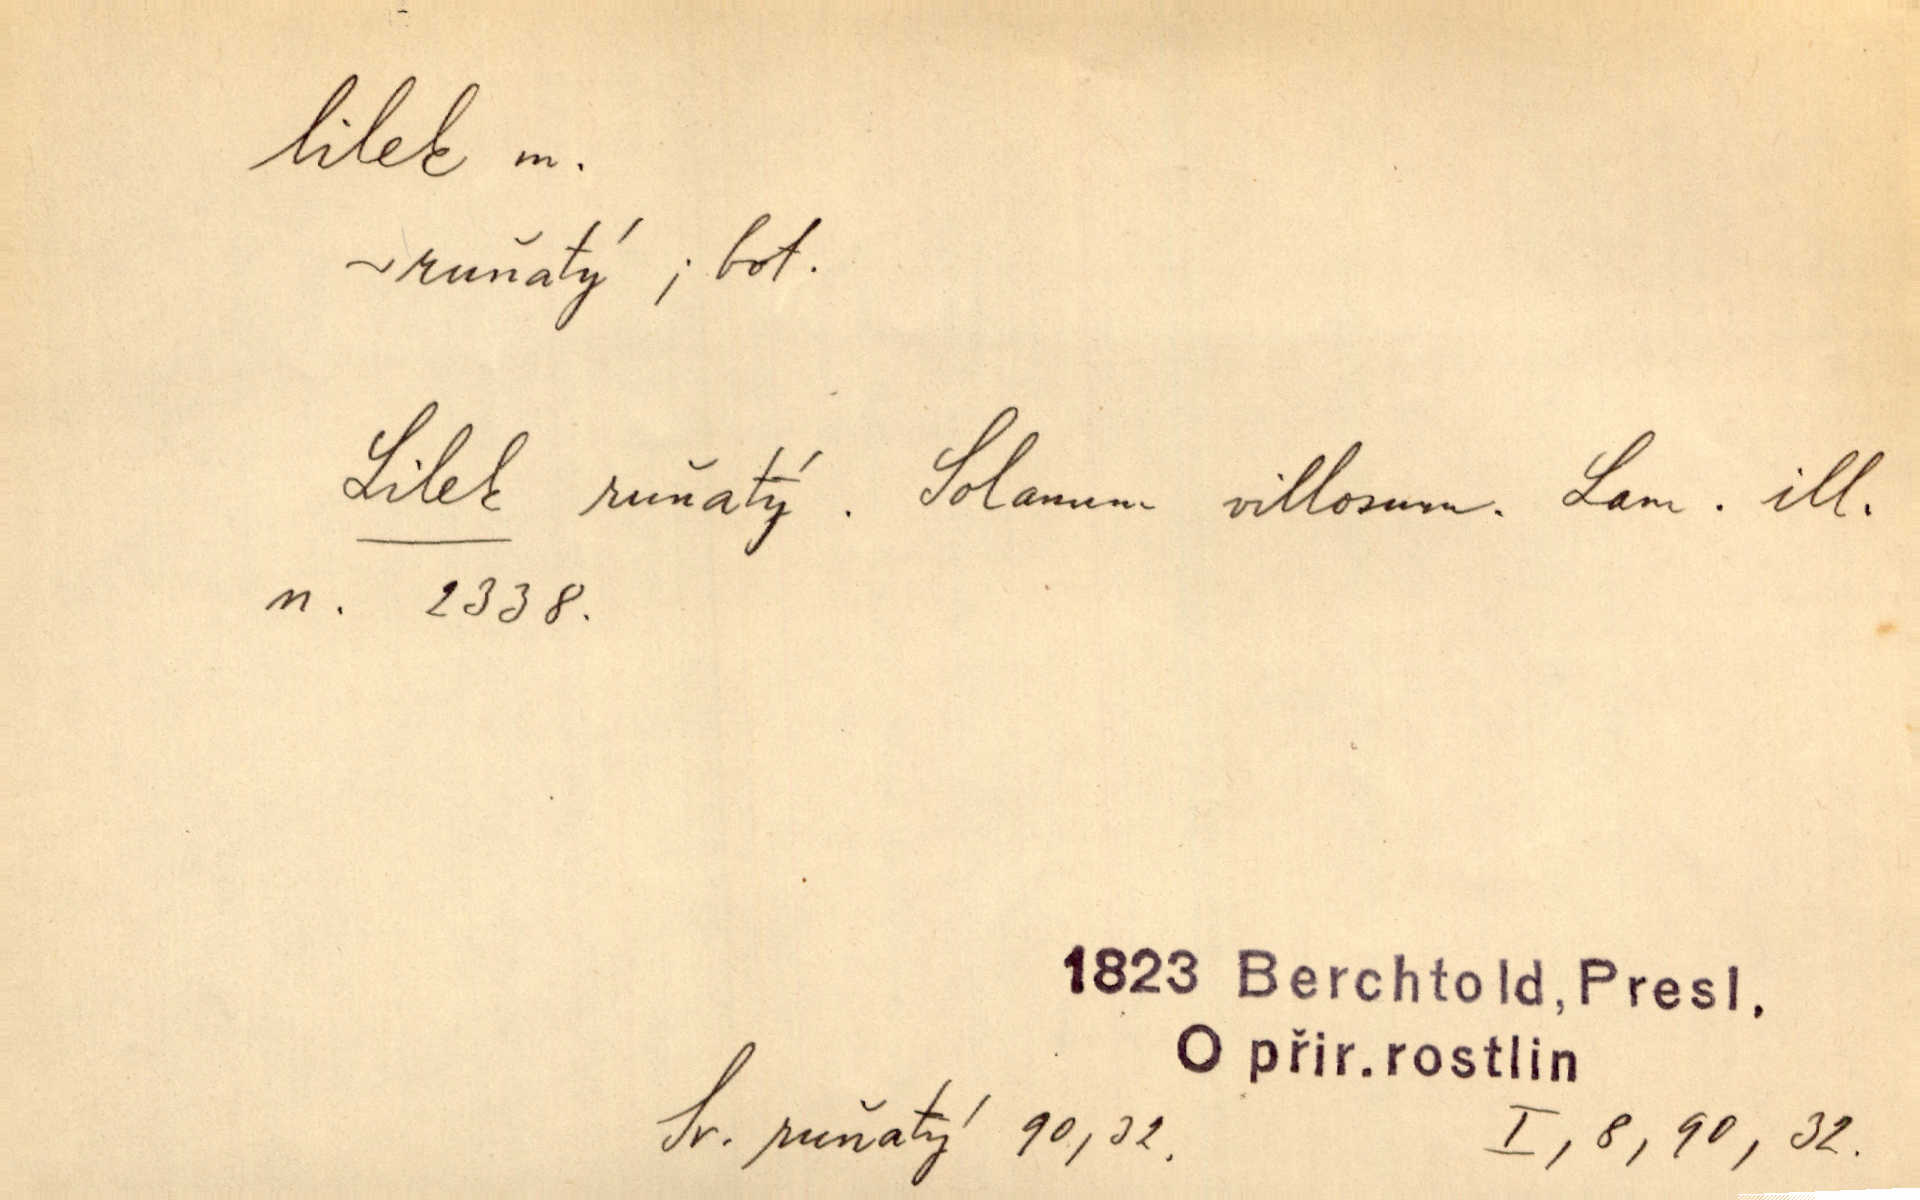 lilek m.
~ruňatý ; bot.
Lilek ruňatý. Solanum villosum. Lam. ill.
n. 2338.
1823 Berchtold, Presl.
O přir. rostlin
Sv. ruňatý 90, 32.
I, 8, 90, 32.